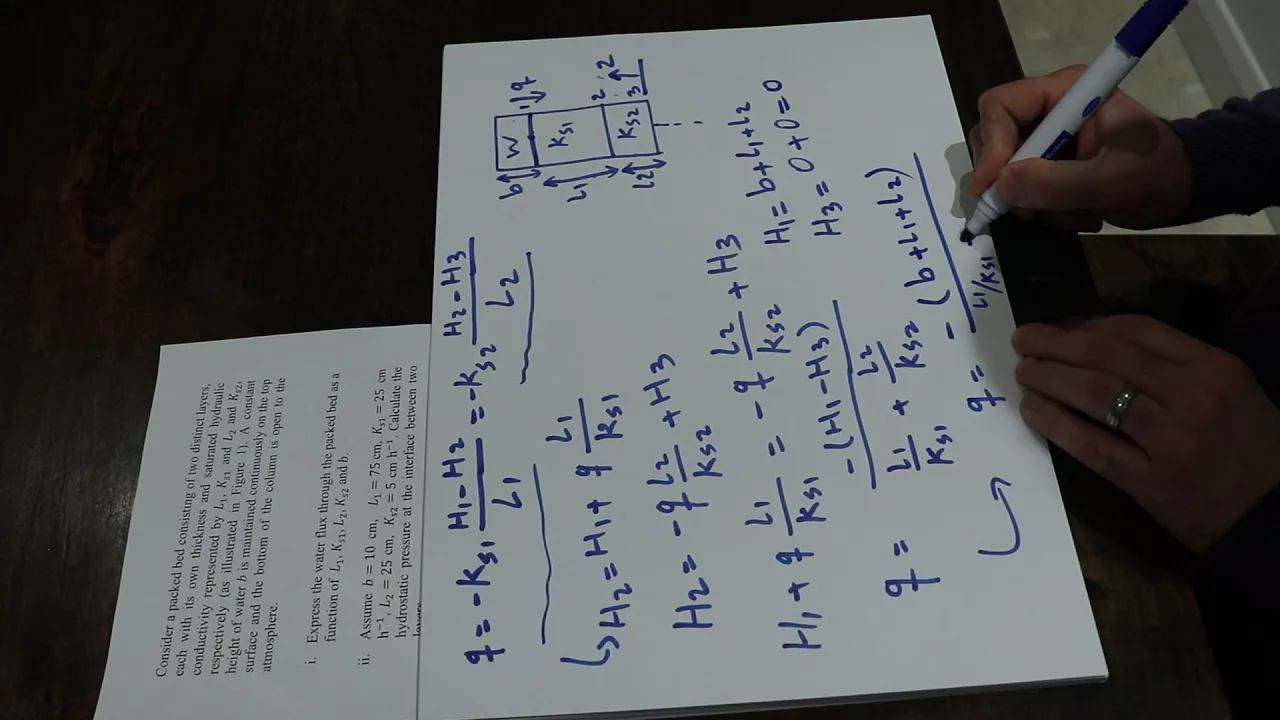 Consider a packed bed consisting of two distinct layers,
each with its own thickness and saturated hydraulic
conductivity represented by L₁, Kₛ₁ and L₂ and Kₛ₂,
respectively (as illustrated in Figure 1). A constant
height of water b is maintained continuously on the top
surface and the bottom of the column is open to the
atmosphere.
i. Express the water flux through the packed bed as a
function of L₁, Kₛ₁, L₂, Kₛ₂ and b.
ii. Assume b = 10 cm, L₁ = 75 cm, Kₛ₁ = 25 cm
h⁻¹, L₂ = 25 cm, Kₛ₂ = 5 cm h⁻¹. Calculate the
hydrostatic pressure at the interface between two
q = -Ks1 (H1-H2)/L1 = -Ks2 (H2-H3)/L2
b W 1 q
L1 Ks1 2
L2 Ks2 3 z
↳ H2 = H1 + q L1/Ks1
H2 = -q L2/Ks2 + H3
H1 + q L1/Ks1 = -q L2/Ks2 + H3
H1 = b+L1+L2
H3 = 0+0=0
q = -(H1-H3) / (L1/Ks1 + L2/Ks2)
q = -(b+L1+L2) / L1/Ks1